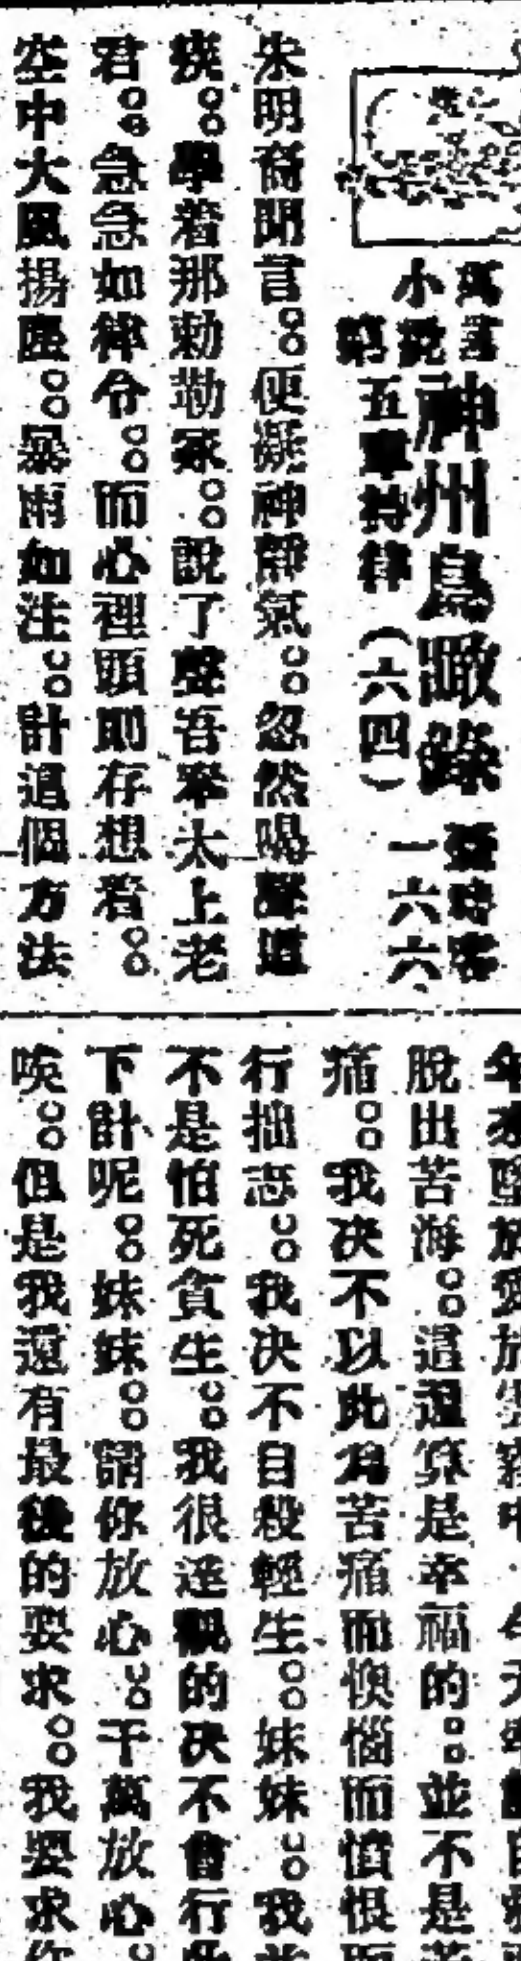 寓言小說
神州鳥瞰錄
亞時客
第五章特律（六四）
一六六
朱明裔聞言。。便凝神靜氣。。忽然喝聲道
疾。。學着那勅勒家。。說了聲吾奉太上老
君。。急急如律令。。而心裡頭即存想着。。
空中大風揚塵。。暴雨如注。。計這個方法
脫出苦海。。這還算是幸福的。。並不是
痛。。我决不以此為苦痛而懊惱而憤恨而
行拙志。。我决不自殺輕生。。妹妹。。我並
不是怕死貪生。。我很達觀的决不會行此
下計呢。。妹妹。。請你放心。。千萬放心。
唉。。但是我還有最後的要求。。我要求你